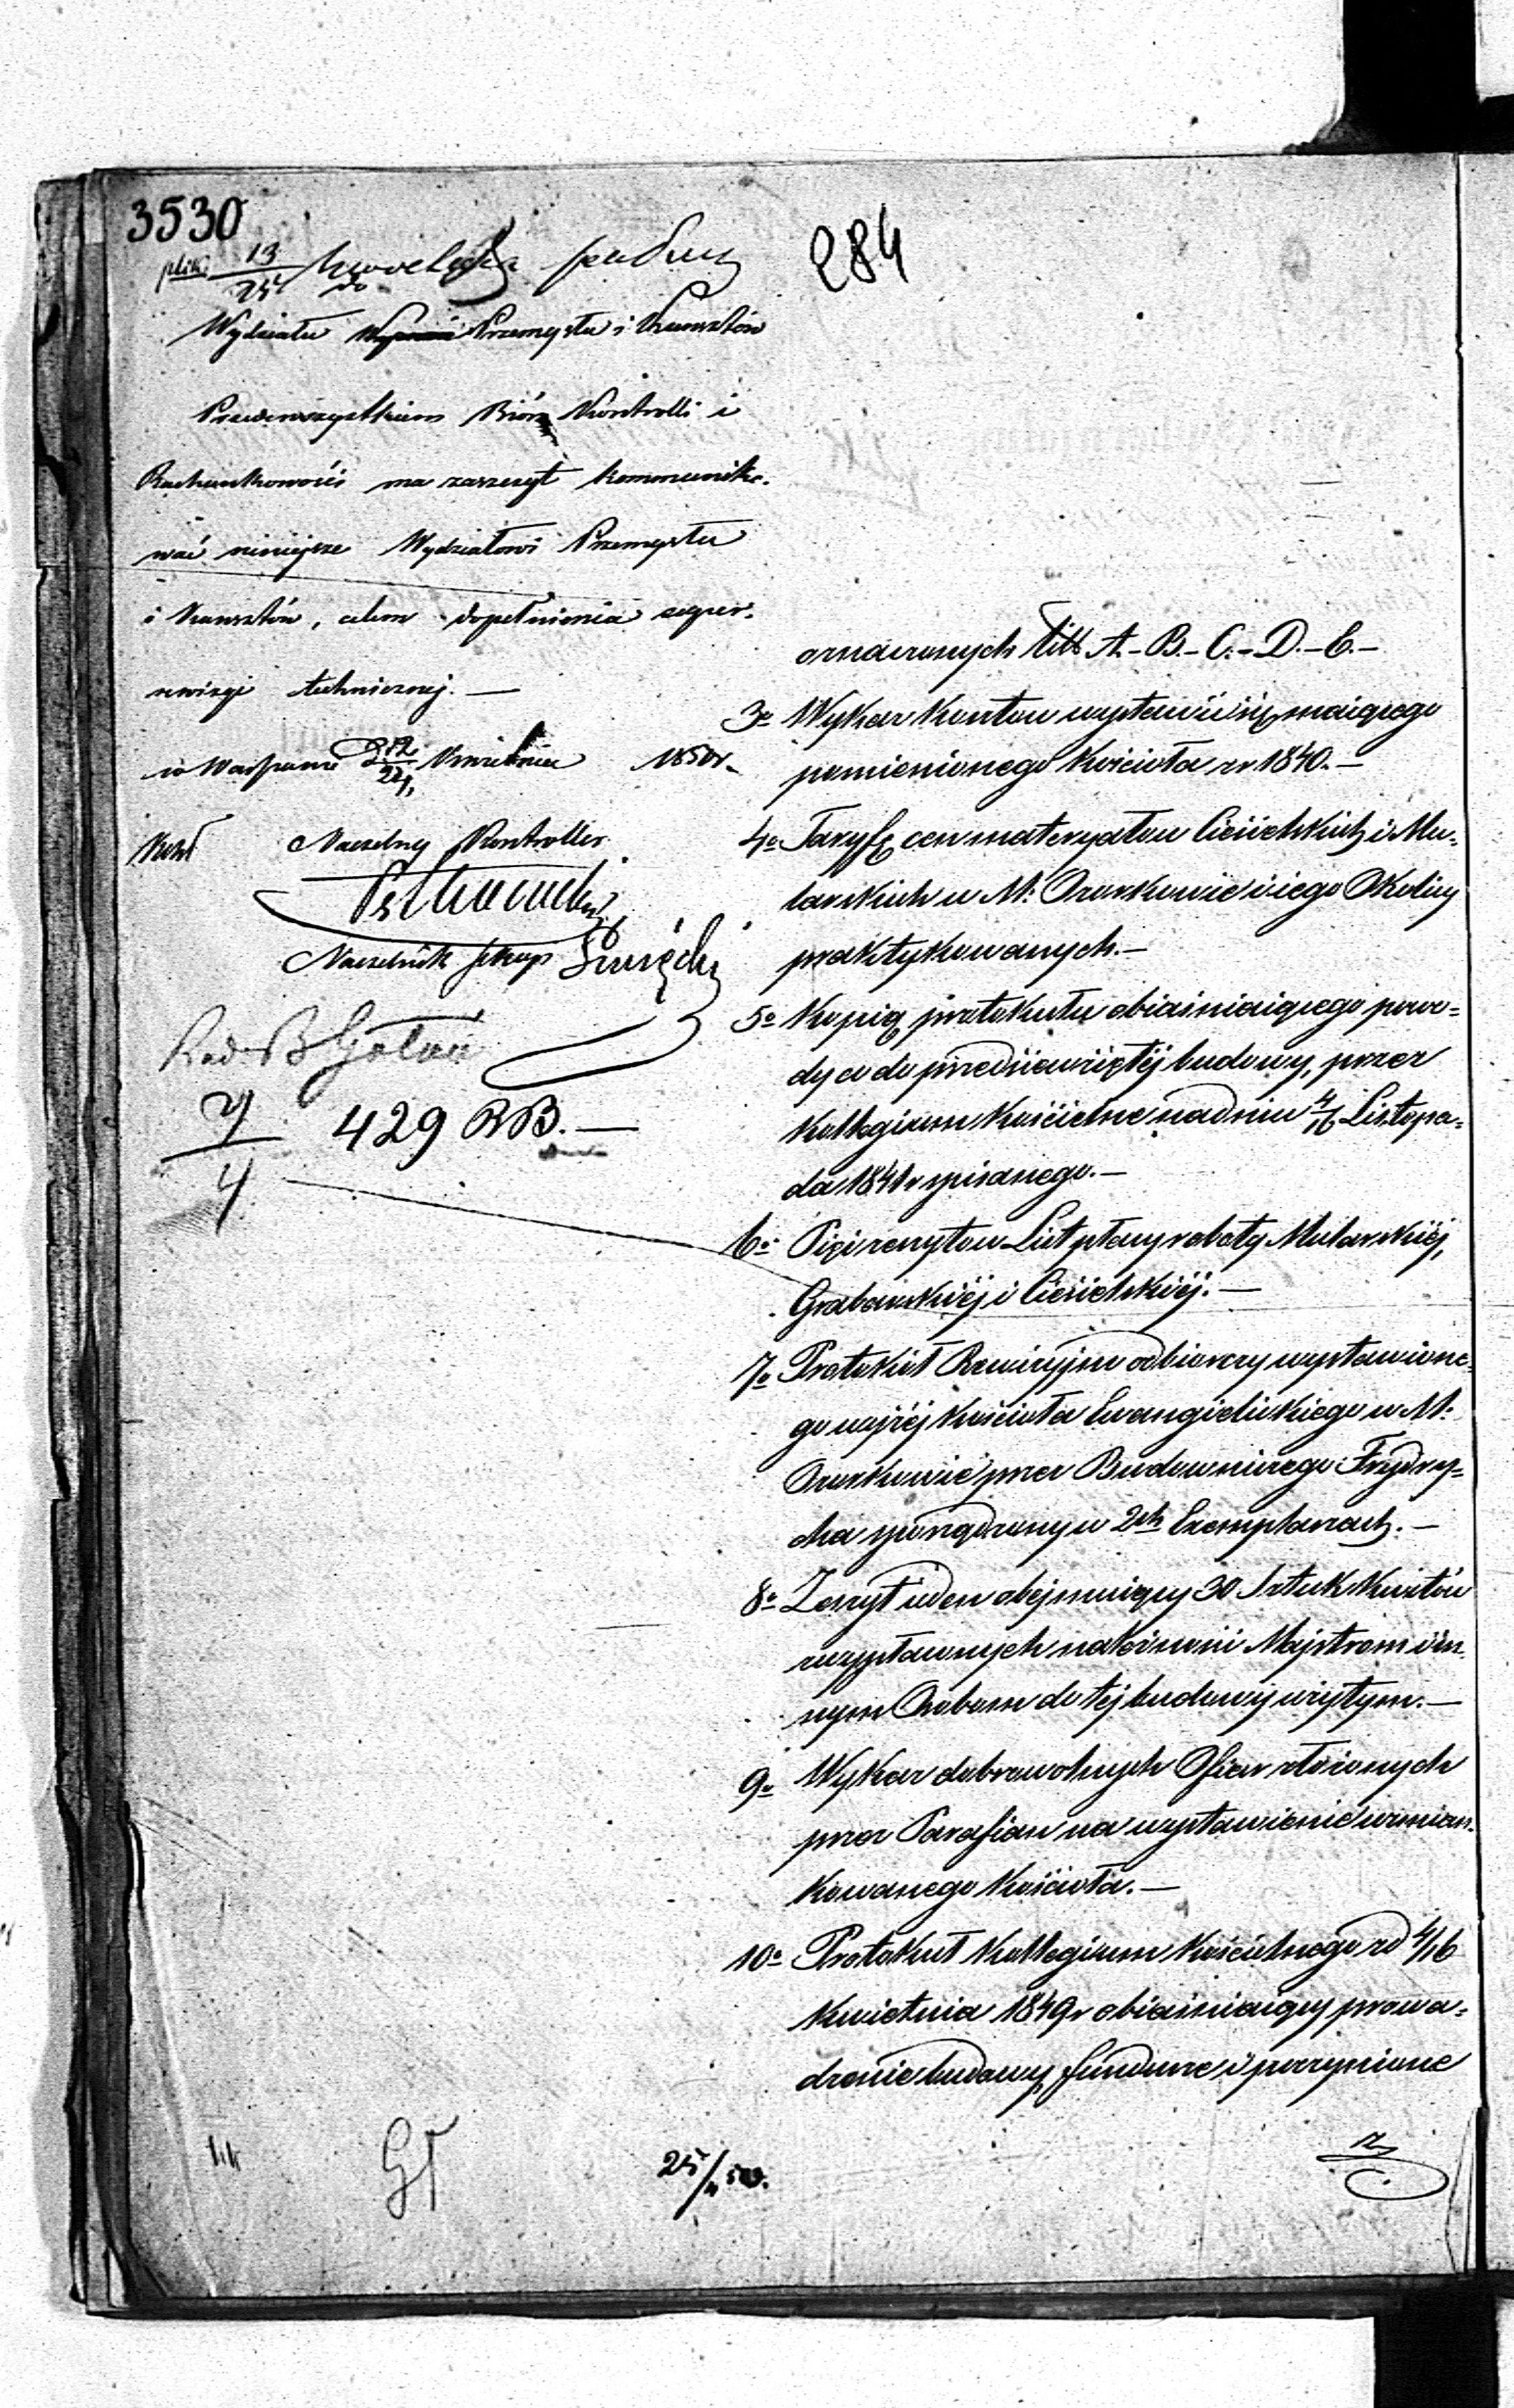 3530
284
13
25
do
Wydziału Przemysłu i Kunsztów
Przedewszystkiem Bióro Kontrolli i
Rachunkowości ma zaszczyt kommuniko-
wać niniejsze Wydziałowi Przemysłu
i Kunsztów, celem dopełnienia super-
rewizyi technicznej. —
w Warszawie d 12/24 Kwietnia 1850 r.
Naczelny Kontroller
Naczelnik Sekcyi
Rad. B
429 RB. —
4
oznaczonych litt A.- B.- C.- D.- E.-
3o Wykaz Kosztów wystawić się maiącego
pomienionego Kościoła z r 1840. —
4o Taryfę cen materyałów Ciesielskich i Mu-
larskich w M: Ozorkowie i iego Okolicy
praktykowanych. —
5o Kopią protokułu obiaśniaiącego powo-
dy co do przedsięwziętej budowy, przez
Kollegium Kościelne na dniu 4/16 Listopa-
da 1841 r spisanego. —
6o Pięć zeszytów List płacy roboty Mularskiéj,
Grabarskiéj i Ciesielskiéj. —
7o Protokół Rewizyjno odbiorczy wystawione-
go wyżéj Kościoła Ewangielickiego w M:
Ozorkowie przez Budowniczego Frydry-
cha sporządzony w 2ch Exemplarzach. —
8o Zeszyt ieden obejmuiący 30 Sztuk Kwitów
wypłaconych należności Majstrom i in-
nym Osobom do téj budowy użytym. —
9o Wykaz dobrowolnych Ofiar złożonych
przez Parafian na wystawienie wzmian-
kowanego Kościoła. —
10o Protokuł Kollegium Kościelnego z d 4/16
Kwietnia 1849 r obiaśniaiący prowa-
dzenie budowy, fundusze i poczynione
25/4 50.